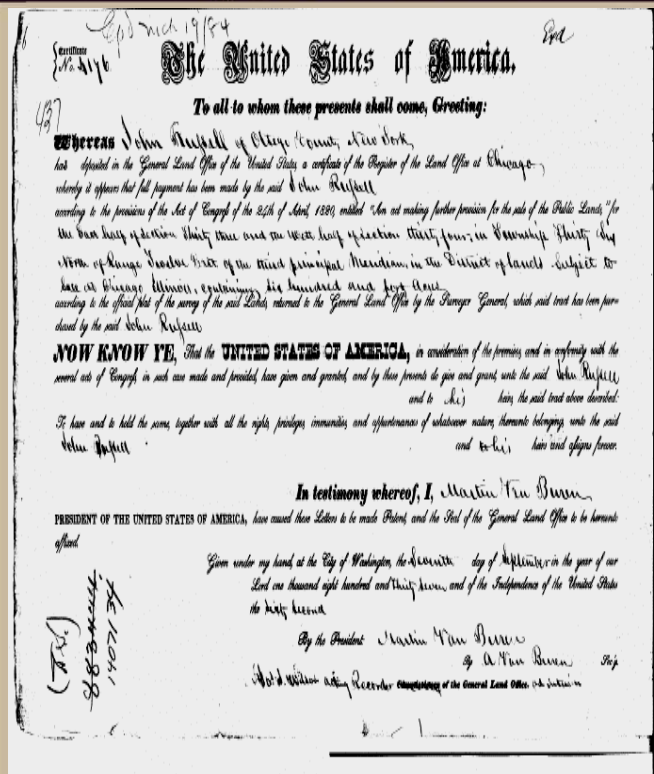 Cpd Mch 19/84
Exd
Certificate
No. 4176
The United States of America.
437
To all to whom these presents shall come, Greeting:
Whereas John Russell of Otego County New York,
has deposited in the General Land Office of the United States, a certificate of the Register of the Land Office at Chicago,
whereby it appears that full payment has been made by the said John Russell
according to the provisions of the Act of Congress of the 24th of April, 1820, entitled "An act making further provision for the sale of the Public Lands," for
the East half of section Thirty three and the West half of section thirty four, in Township Thirty Six
North of Range Twelve East of the third principal Meridian, in the District of lands Subject to
Sale at Chicago Illinois, containing six hundred and forty acres
according to the official plat of the survey of the said Lands, returned to the General Land Office by the Surveyor General, which said tract has been pur-
chased by the said John Russell
NOW KNOW YE, That the UNITED STATES OF AMERICA, in consideration of the premises, and in conformity with the
several acts of Congress, in such case made and provided, have given and granted, and by these presents do give and grant, unto the said John Russell
and to his heirs, the said tract above described:
To have and to hold the same, together with all the rights, privileges, immunities, and appurtenances of whatsoever nature, thereunto belonging, unto the said
John Russell and to his heirs and assigns forever.
In testimony whereof, I, Martin Van Buren
PRESIDENT OF THE UNITED STATES OF AMERICA, have caused these Letters to be made Patent, and the Seal of the General Land Office to be hereunto
affixed.
Given under my hand, at the City of Washington, the Seventh day of September in the year of our
Lord one thousand eight hundred and thirty seven and of the Independence of the United States
the sixty second
By the President: Martin Van Buren
By A. Van Buren Sec'y.
acting Recorder of the General Land Office. ad interim
140217